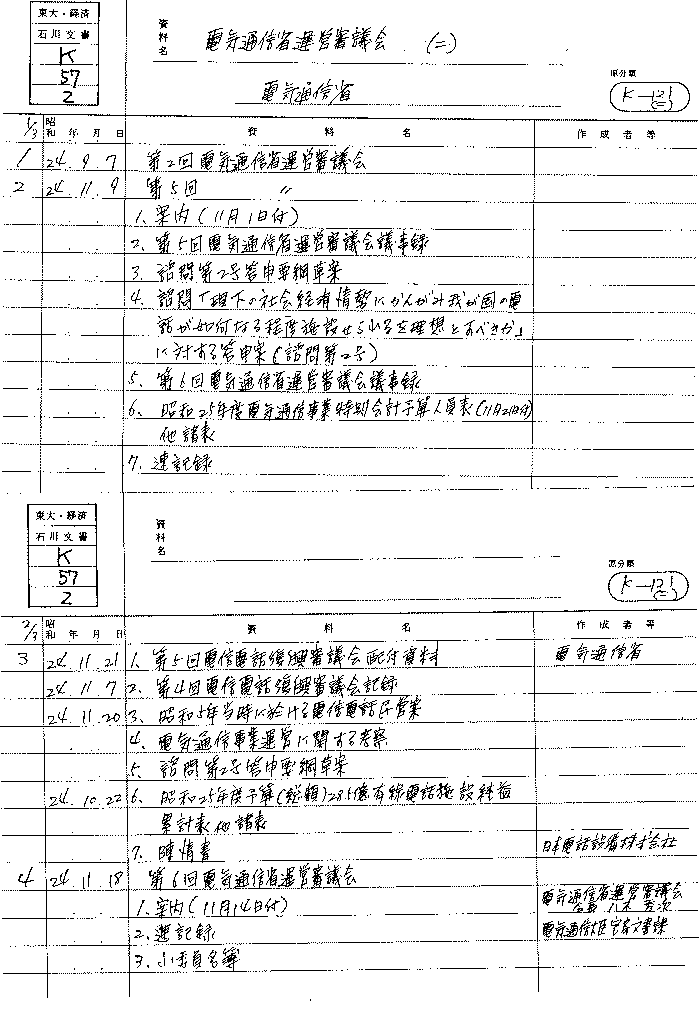 東大・経済
石川文書
K
57
2
資料名 電気通信省運営審議会 (二)
電気通信省
原分類
K-121
(二)
1/3 昭和 年 月 日 資料名 作成者等
1 24 9 7 第2回電気通信省運営審議会
2 24 11 9 第5回 〃
1. 案内(11月1日付)
2. 第5回電気通信省運営審議会議事録
3. 諮問第2号答申要綱草案
4. 諮問「現下の社会経済情勢にかんがみ我が国の電
話が如何なる程度施設せられるを理想とすべきか」
に対する答申案(諮問第2号)
5. 第6回電気通信省運営審議会議事録
6. 昭和25年度電気通信事業特別会計予算人員表(11月21日付)
他諸表
7. 速記録
東大・経済
石川文書
K
57
2
資料名
原分類
K-121
(二)
2/3 昭和 年 月 日 資料名 作成者等
3 24 11 21 1. 第5回電信電話復興審議会配付資料 電気通信省
24 11 7 2. 第4回電信電話復興審議会記録
24 11 20 3. 昭和5年当時に於ける電信電話民営案
4. 電気通信事業運営に関する考察
5. 諮問第2号答申要綱草案
24 10 22 6. 昭和25年度予算(総額)285億有線電話施設純益
累計表他諸表
7. 陳情書 日本電話設備株式会社
4 24 11 18 第6回電気通信省運営審議会
1. 案内(11月14日付) 電気通信省運営審議会
会長 八木秀次
2. 速記録 電気通信大臣官房文書課
3. 小委員名簿